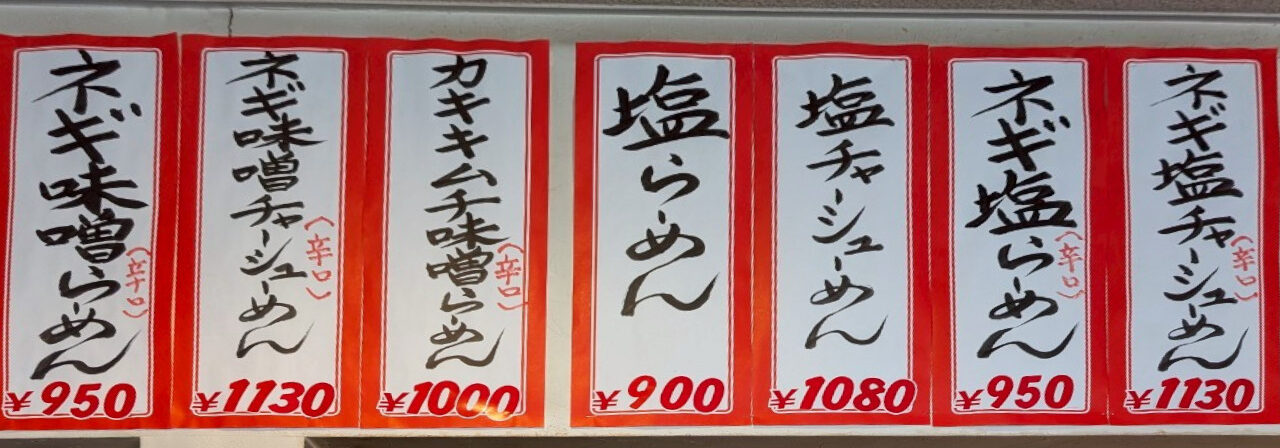 ネギ味噌らーめん
(辛口)
¥950
ネギ味噌チャーシューめん
(辛口)
¥1130
カキキムチ味噌らーめん
(辛口)
¥1000
塩らーめん
¥900
塩チャーシューめん
¥1080
ネギ塩らーめん
(辛口)
¥950
ネギ塩チャーシューめん
(辛口)
¥1130